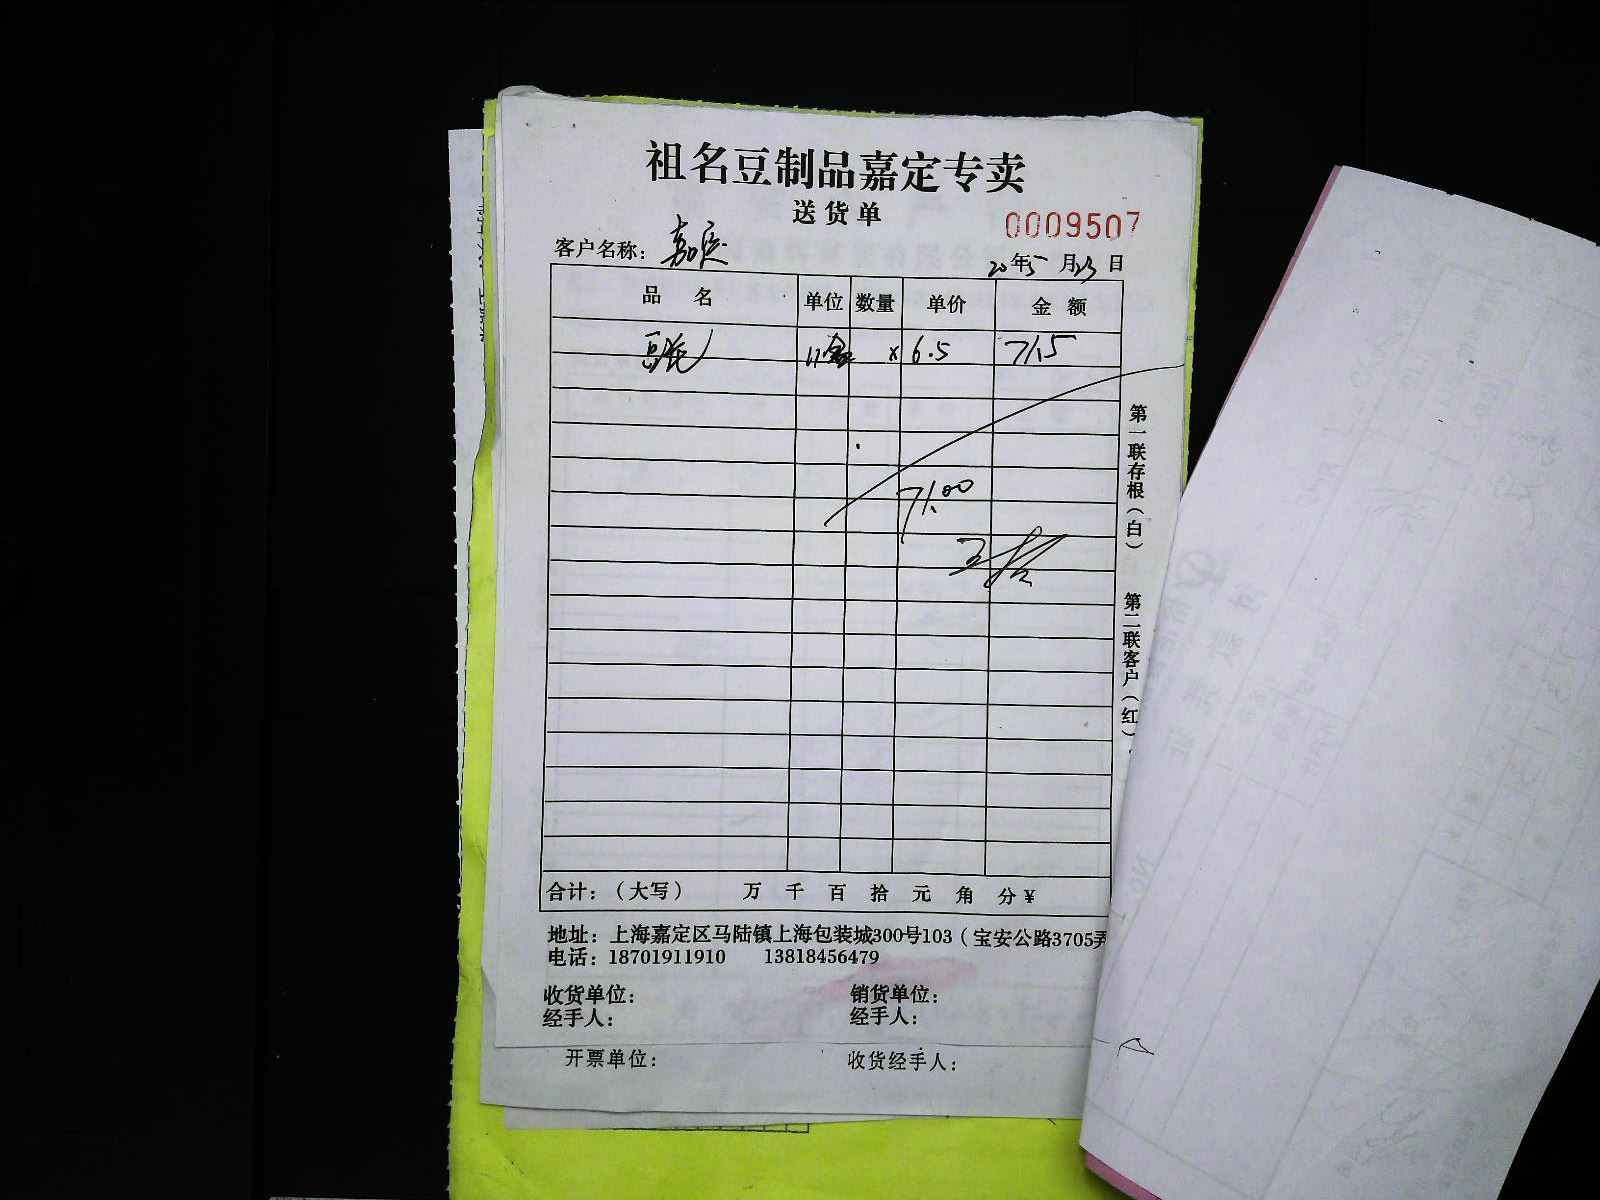 祖名豆制品嘉定专卖
送货单
0009507
客户名称：嘉
20年5月23日
品 名 单位 数量 单价 金额
豆花 11盒 × 6.5 71.5
71.00
第一联存根（白）
第二联客户（红）
合计：（大写） 万 千 百 拾 元 角 分 ¥
地址：上海嘉定区马陆镇上海包装城300号103（宝安公路3705弄
电话：18701911910 13818456479
收货单位： 销货单位：
经手人： 经手人：
开票单位： 收货经手人：